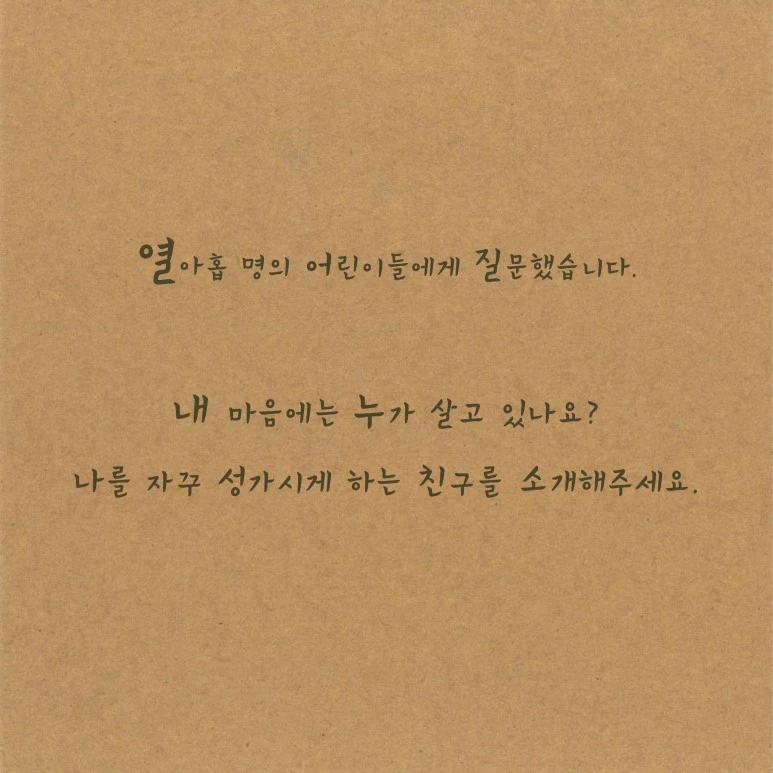 열아홉 명의 어린이들에게 질문했습니다.
내 마음에는 누가 살고 있나요?
나를 자꾸 성가시게 하는 친구를 소개해주세요.